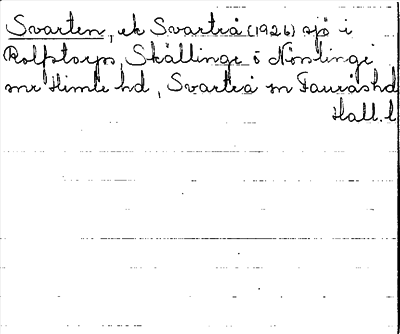 Svarten, ek Svartrå (1926) sjö i
Rolfstorps, Skällinge o Nösslinge
snr Himle hd, Svartrå sn Faurås hd
Hall. l